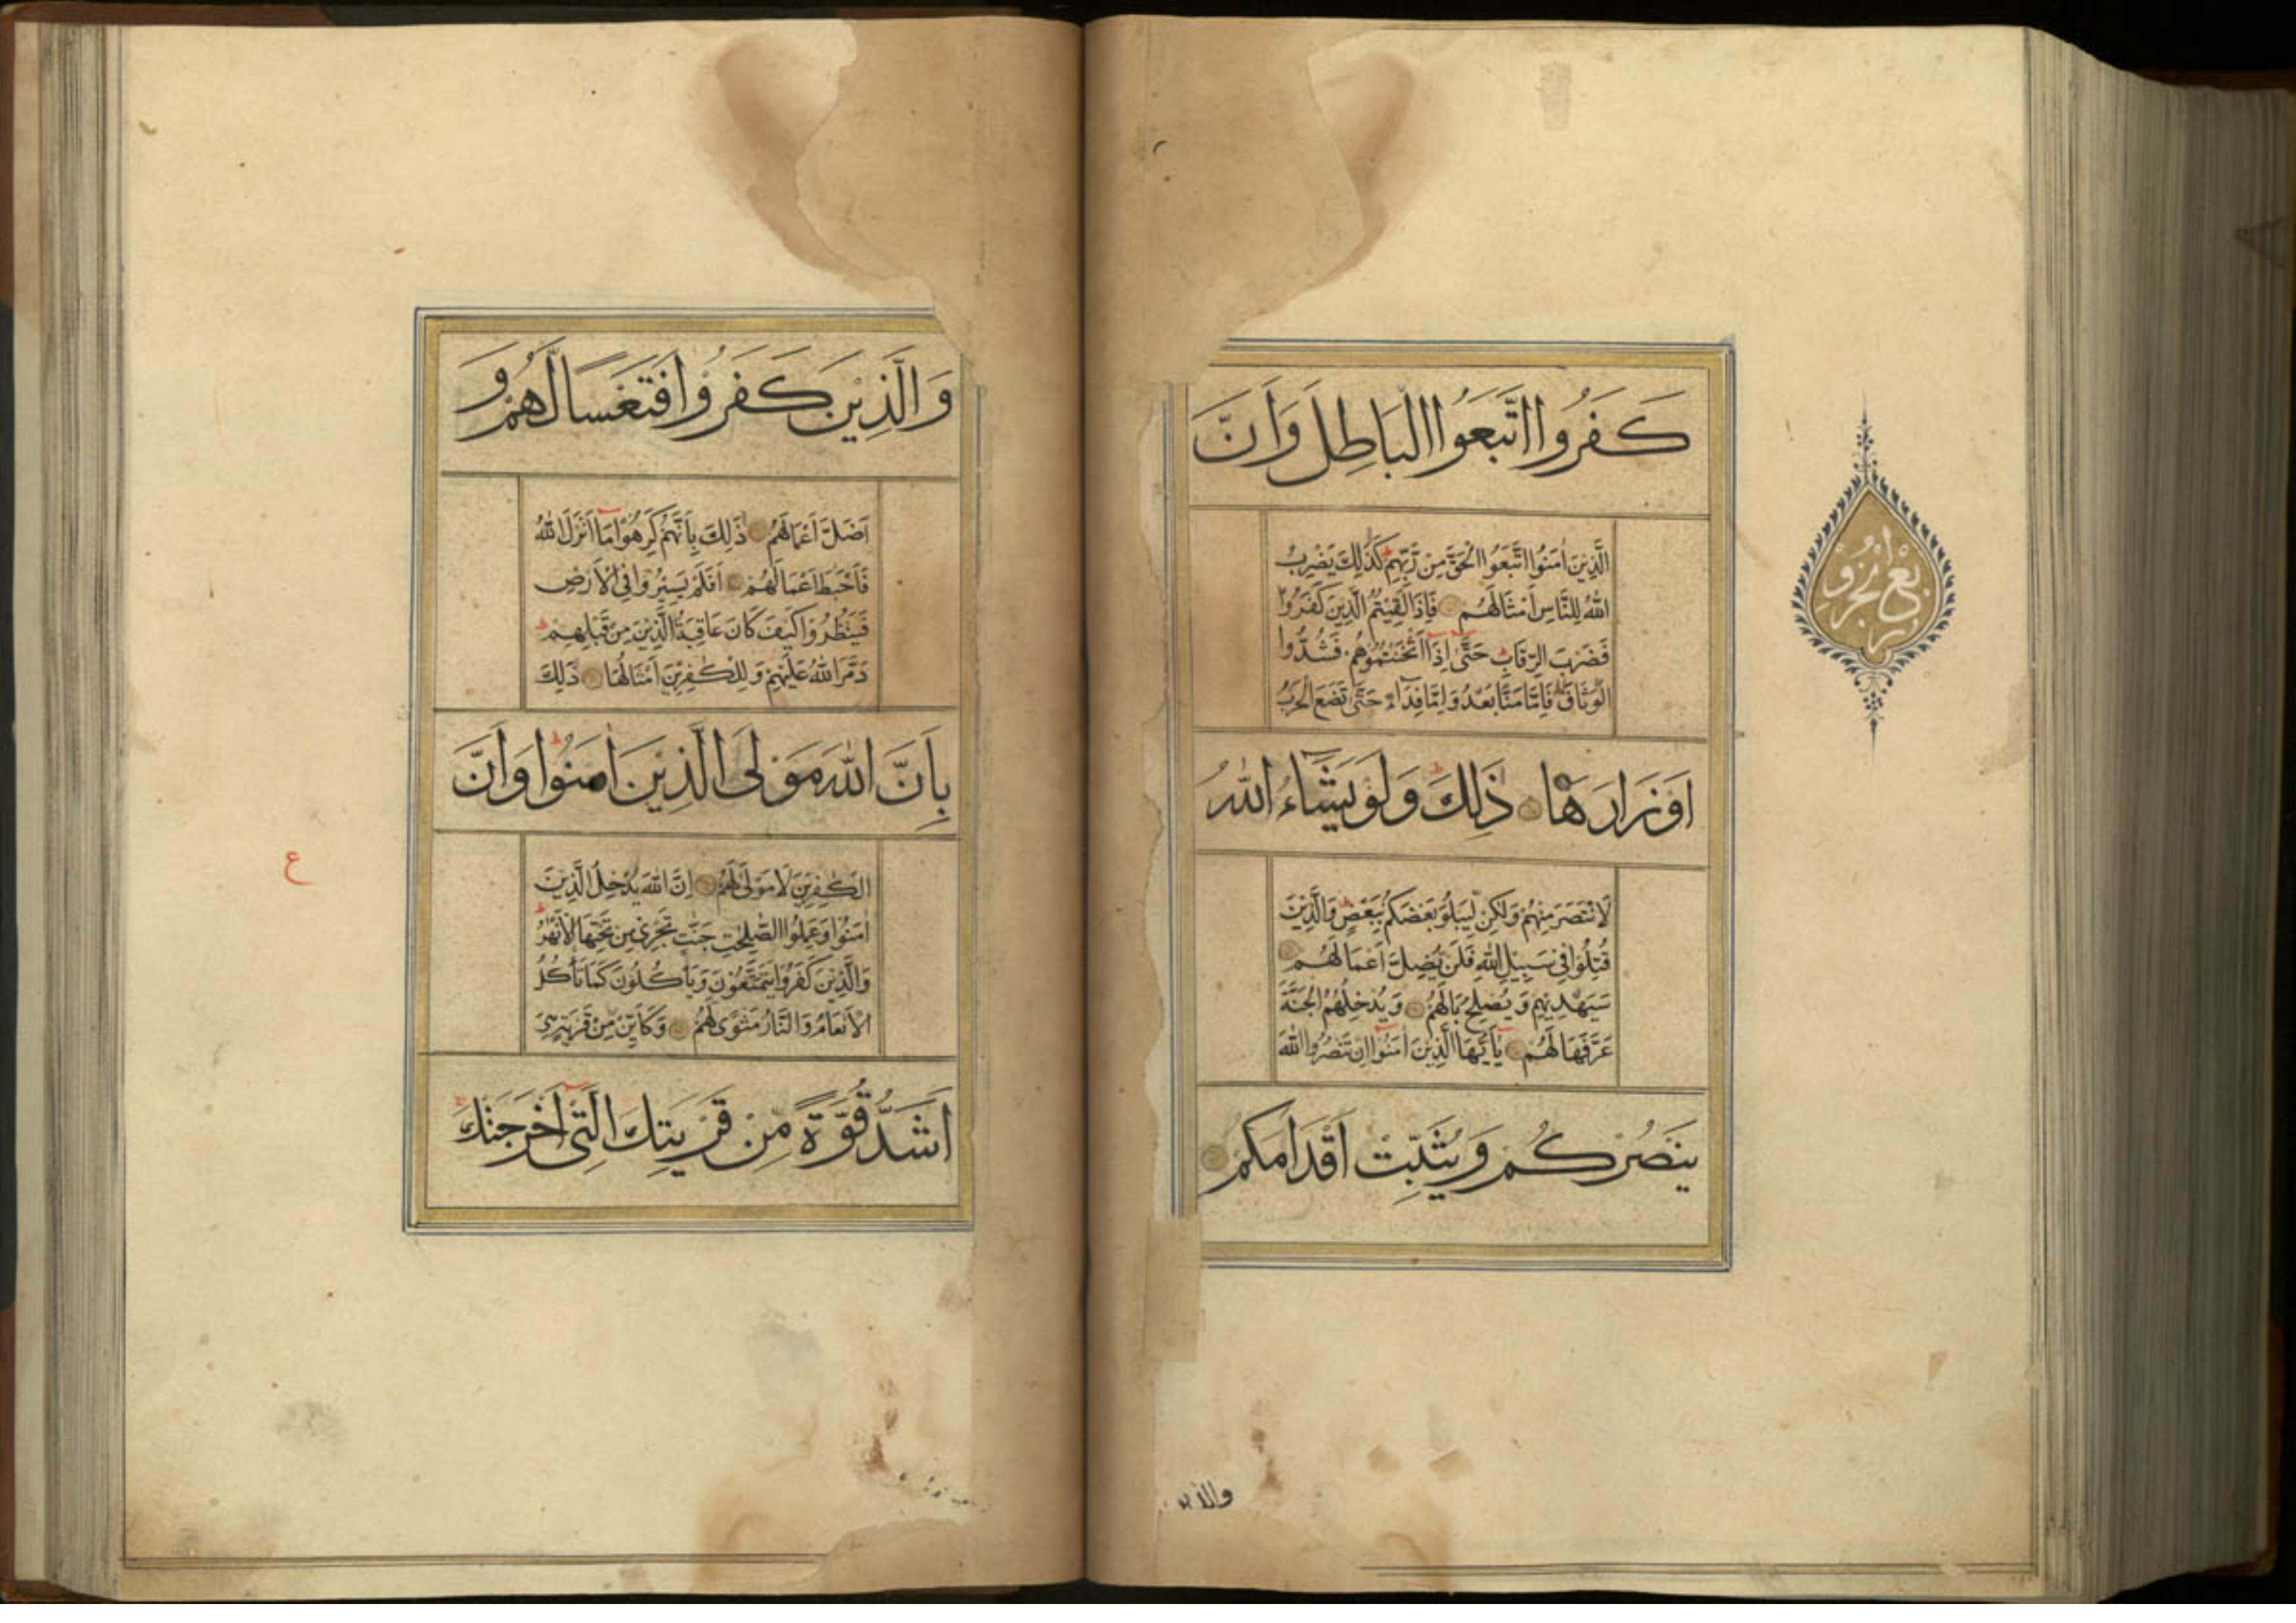 كَفَرُوا اتَّبَعُوا الْبَاطِلَ وَاَنَّ
الَّذِيْنَ اٰمَنُوا اتَّبَعُوا الْحَقَّ مِنْ رَّبِّهِمْ كَذٰلِكَ يَضْرِبُ
اللّٰهُ لِلنَّاسِ اَمْثَالَهُمْ فَاِذَا لَقِيْتُمُ الَّذِيْنَ كَفَرُوْا
فَضَرْبَ الرِّقَابِ حَتّٰى اِذَا اَثْخَنْتُمُوْهُمْ فَشُدُّوا
الْوَثَاقَ فَاِمَّا مَنًّا بَعْدُ وَاِمَّا فِدَاءً حَتّٰى تَضَعَ الْحَرْبُ
اَوْزَارَهَا ذٰلِكَ وَلَوْ يَشَاءُ اللّٰهُ
لَانْتَصَرَ مِنْهُمْ وَلٰكِنْ لِّيَبْلُوَ بَعْضَكُمْ بِبَعْضٍ وَالَّذِيْنَ
قُتِلُوْا فِيْ سَبِيْلِ اللّٰهِ فَلَنْ يُّضِلَّ اَعْمَالَهُمْ
سَيَهْدِيْهِمْ وَيُصْلِحُ بَالَهُمْ وَيُدْخِلُهُمُ الْجَنَّةَ
عَرَّفَهَا لَهُمْ يٰاَيُّهَا الَّذِيْنَ اٰمَنُوْا اِنْ تَنْصُرُوا اللّٰهَ
يَنْصُرْكُمْ وَيُثَبِّتْ اَقْدَامَكُمْ
والذين
وَالَّذِيْنَ كَفَرُوْا فَتَعْسًا لَّهُمْ وَ
اَضَلَّ اَعْمَالَهُمْ ذٰلِكَ بِاَنَّهُمْ كَرِهُوْا مَا اَنْزَلَ اللّٰهُ
فَاَحْبَطَ اَعْمَالَهُمْ اَفَلَمْ يَسِيْرُوْا فِي الْاَرْضِ
فَيَنْظُرُوْا كَيْفَ كَانَ عَاقِبَةُ الَّذِيْنَ مِنْ قَبْلِهِمْ
دَمَّرَ اللّٰهُ عَلَيْهِمْ وَلِلْكٰفِرِيْنَ اَمْثَالُهَا ذٰلِكَ
بِاَنَّ اللّٰهَ مَوْلَى الَّذِيْنَ اٰمَنُوْا وَاَنَّ
الْكٰفِرِيْنَ لَا مَوْلٰى لَهُمْ اِنَّ اللّٰهَ يُدْخِلُ الَّذِيْنَ
اٰمَنُوْا وَعَمِلُوا الصّٰلِحٰتِ جَنّٰتٍ تَجْرِيْ مِنْ تَحْتِهَا الْاَنْهٰرُ
وَالَّذِيْنَ كَفَرُوْا يَتَمَتَّعُوْنَ وَيَاْكُلُوْنَ كَمَا تَاْكُلُ
الْاَنْعَامُ وَالنَّارُ مَثْوًى لَّهُمْ وَكَاَيِّنْ مِّنْ قَرْيَةٍ هِيَ
اَشَدُّ قُوَّةً مِّنْ قَرْيَتِكَ الَّتِيْ اَخْرَجَتْكَ
ع